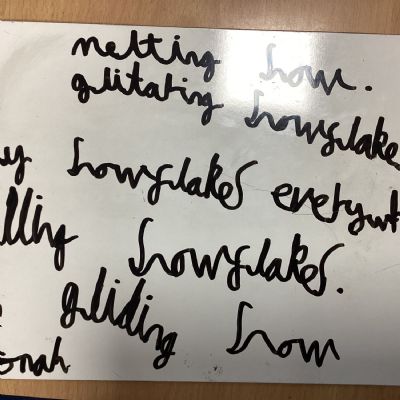 melting snow.
glitating snowflake
y snowflakes everyw
lling snowflakes.
gliding snow
onah